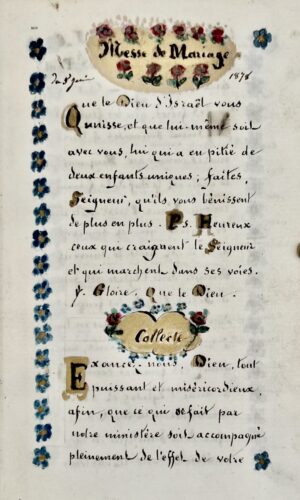 Messe de Mariage
du 8 Juin 1878
Que le Dieu d'Israël vous
unisse, et que lui-même soit
avec vous, lui qui a eu pitié de
deux enfants uniques ; faites,
Seigneur, qu'ils vous bénissent
de plus en plus. Ps. Heureux
ceux qui craignent le Seigneur
et qui marchent dans ses voies.
℣. Gloire. Que le Dieu.
Collecte
Exancez-nous, Dieu, tout
puissant et miséricordieux,
afin, que ce qui se fait par
notre ministère soit accompagné
pleinement de l'effet de votre